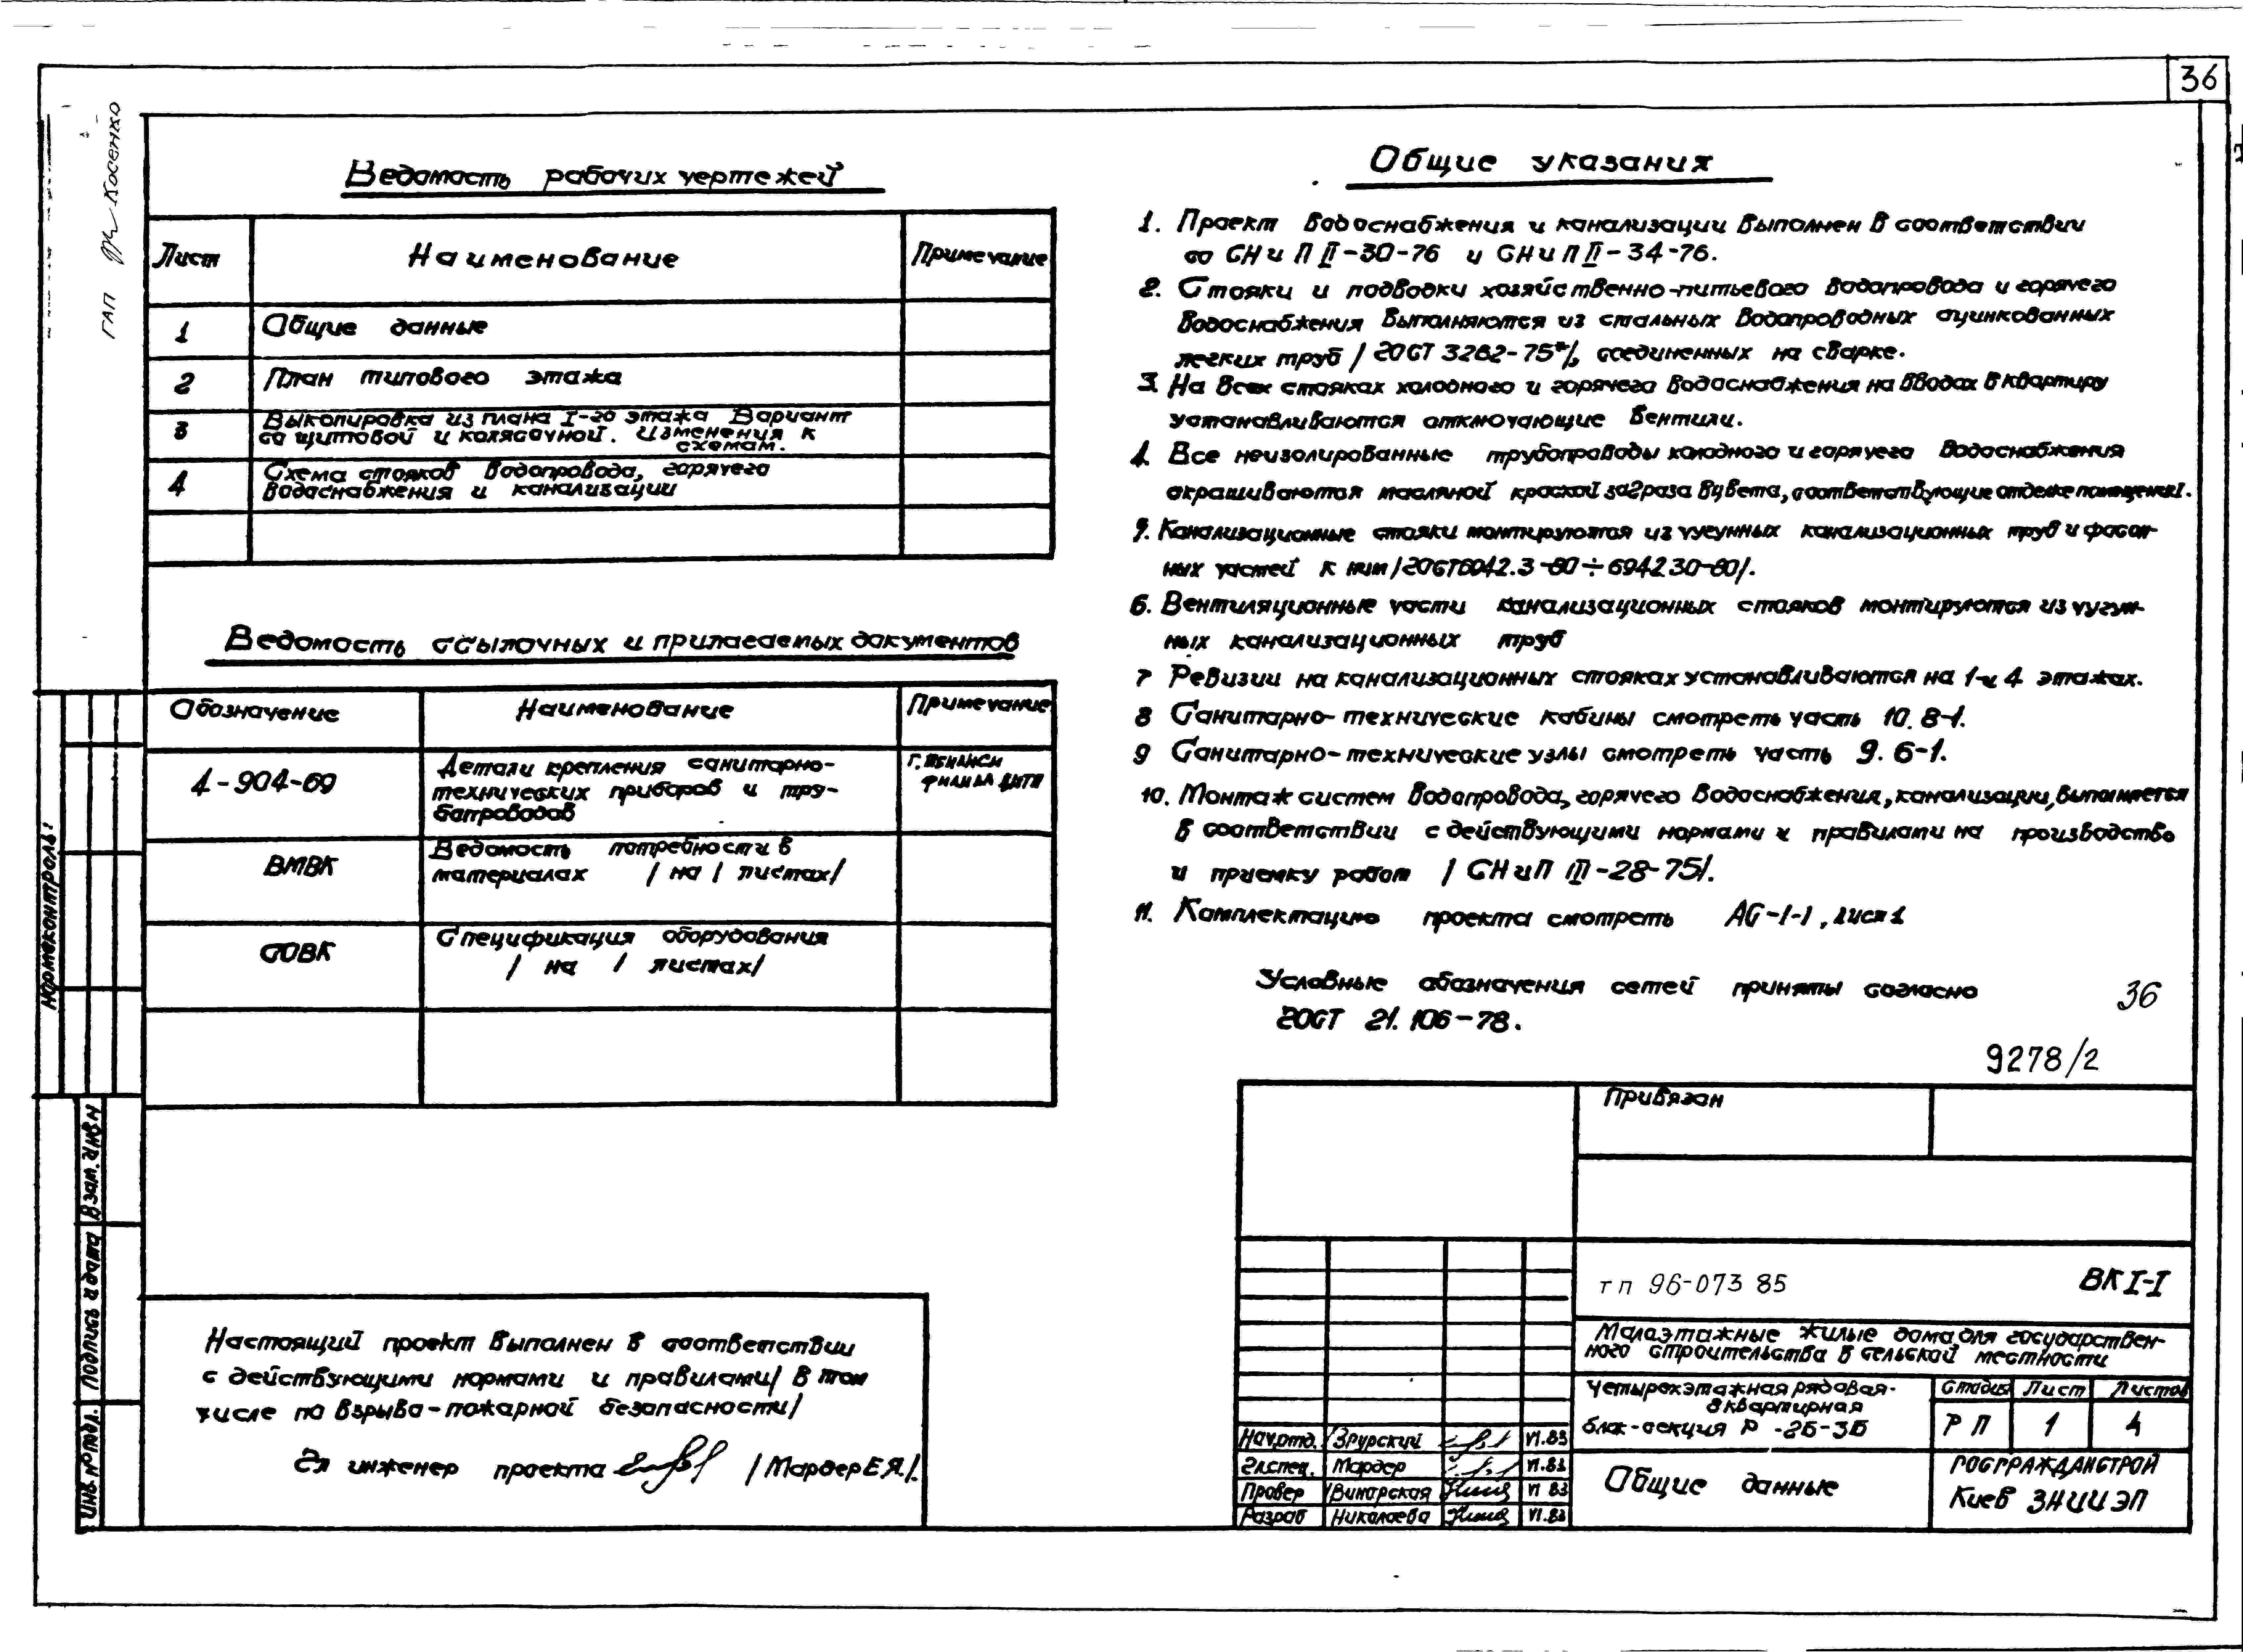 36
ГАП Косенко
Ведомость рабочих чертежей
Лист Наименование Примечание
1 Общие данные
2 План типового этажа
3 Выкопировка из плана I-го этажа Вариант
со щитовой и колясочной. Изменения к
схемам.
4 Схема стояков водопровода, горячего
водоснабжения и канализации
Ведомость ссылочных и прилагаемых документов
Обозначение Наименование Примечание
4-904-69 Детали крепления санитарно-
технических приборов и тру-
бопроводов
г. Тбилиси
филиал ЦИТП
ВМВК Ведомость потребности в
материалах /на 1 листах/
СОВК Спецификация оборудования
/ на 1 листах/
Настоящий проект выполнен в соответствии
с действующими нормами и правилами/ в том
числе по взрыво-пожарной безопасности/
Гл инженер проекта /Мардер Е.Я./.
Общие указания
1. Проект водоснабжения и канализации выполнен в соответствии
со СНиП II-30-76 и СНиП II-34-76.
2. Стояки и подводки хозяйственно-питьевого водопровода и горячего
водоснабжения выполняются из стальных водопроводных оцинкованных
легких труб /ГОСТ 3262-75*/, соединенных на сварке.
3. На всех стояках холодного и горячего водоснабжения на вводах в квартиру
устанавливаются отключающие вентили.
4. Все неизолированные трубопроводы холодного и горячего водоснабжения
окрашиваются масляной краской за 2 раза в цвета, соответствующие отделке помещений.
5. Канализационные стояки монтируются из чугунных канализационных труб и фасон-
ных частей к ним /ГОСТ 6942.3-80÷6942.30-80/.
6. Вентиляционные части канализационных стояков монтируются из чугун-
ных канализационных труб
7 Ревизии на канализационных стояках устанавливаются на 1 и 4 этажах.
8 Санитарно-технические кабины смотреть часть 10. 8-1.
9 Санитарно-технические узлы смотреть часть 9. 6-1.
10. Монтаж систем водопровода, горячего водоснабжения, канализации, выполняется
в соответствии с действующими нормами и правилами на производство
и приемку работ /СНиП III-28-75/.
11. Комплектацию проекта смотреть АС-1-1, лист 1
Условные обозначения сетей приняты согласно
ГОСТ 21.106-78.
36
9278/2
Привязан
тп 96-073 85 ВК I-I
Малоэтажные жилые дома для государствен-
ного строительства в сельской местности
Четырехэтажная рядовая
8 квартирная
блок-секция Р -2Б-3Б
Стадия Лист Листов
РП 1 4
Нач.отд. Зрурский VI.83
Гл.спец. Мардер VI.83
Провер Винарская VI 83
Разраб Николаева VI.83
Общие данные
ГОСГРАЖДАНСТРОЙ
Киев ЗНИИЭП
Нормоконтроль:
Взам. инв N
Подпись и дата
Инв. N подл.